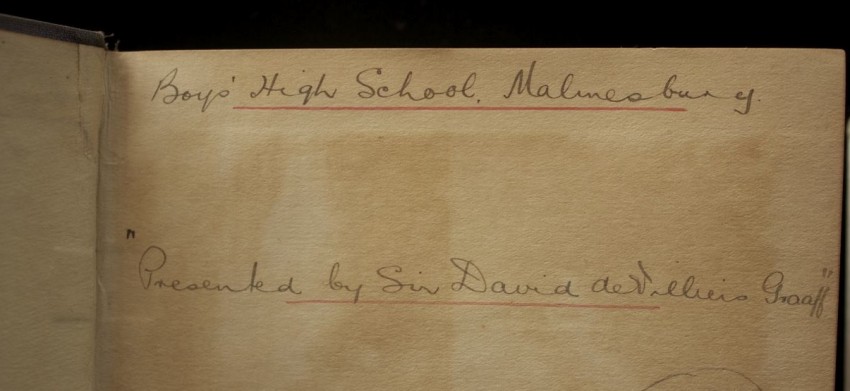 Boys' High School. Malmesbury.
"Presented by Sir David de Villiers Graaff"